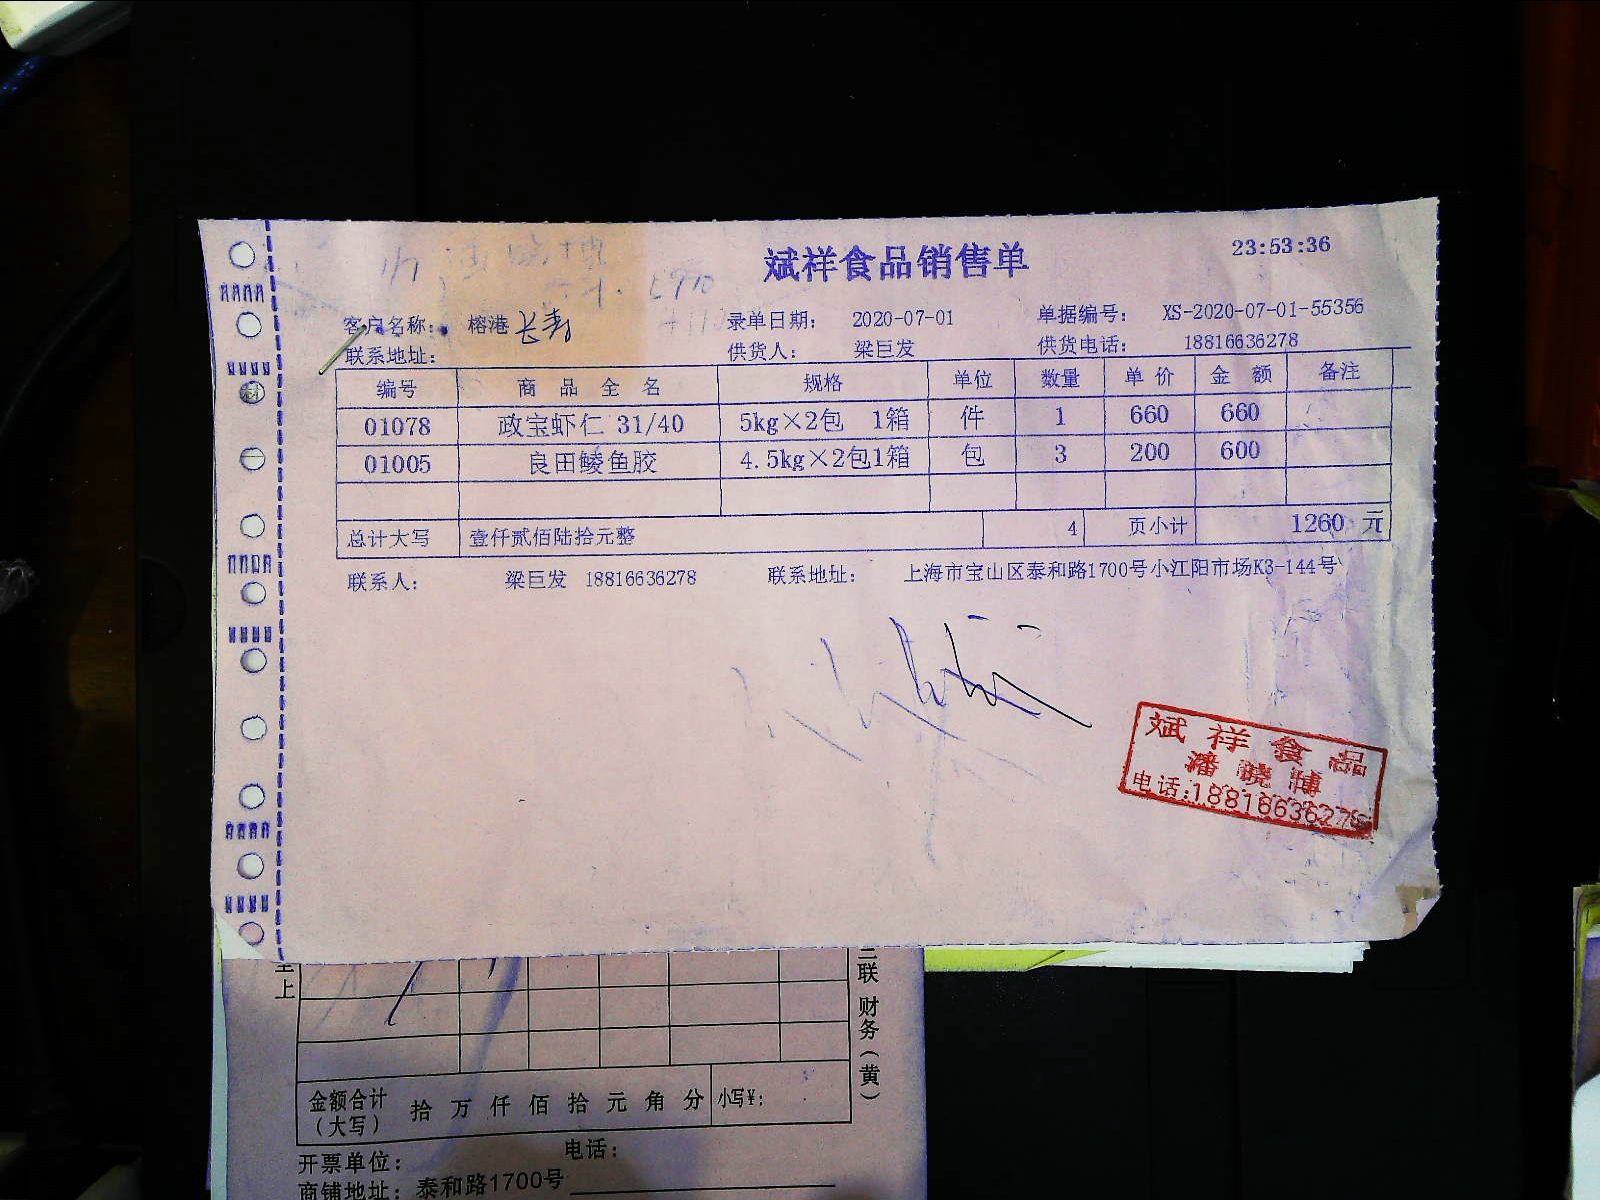 斌祥食品销售单 23:53:36
客户名称： 榕港 长寿 录单日期： 2020-07-01 单据编号： XS-2020-07-01-55356
联系地址： 供货人： 梁巨发 供货电话： 18816636278
编号 商品全名 规格 单位 数量 单价 金额 备注
01078 政宝虾仁 31/40 5kg×2包 1箱 件 1 660 660
01005 良田鲮鱼胶 4.5kg×2包1箱 包 3 200 600
总计大写 壹仟贰佰陆拾元整 4 页小计 1260 元
联系人： 梁巨发 18816636278 联系地址： 上海市宝山区泰和路1700号小江阳市场K3-144号
斌祥食品
潘晓
电话:18816636278
上
二联 财务（黄）
金额合计（大写） 拾 万 仟 佰 拾 元 角 分 小写¥:
开票单位： 电话：
商铺地址：泰和路1700号